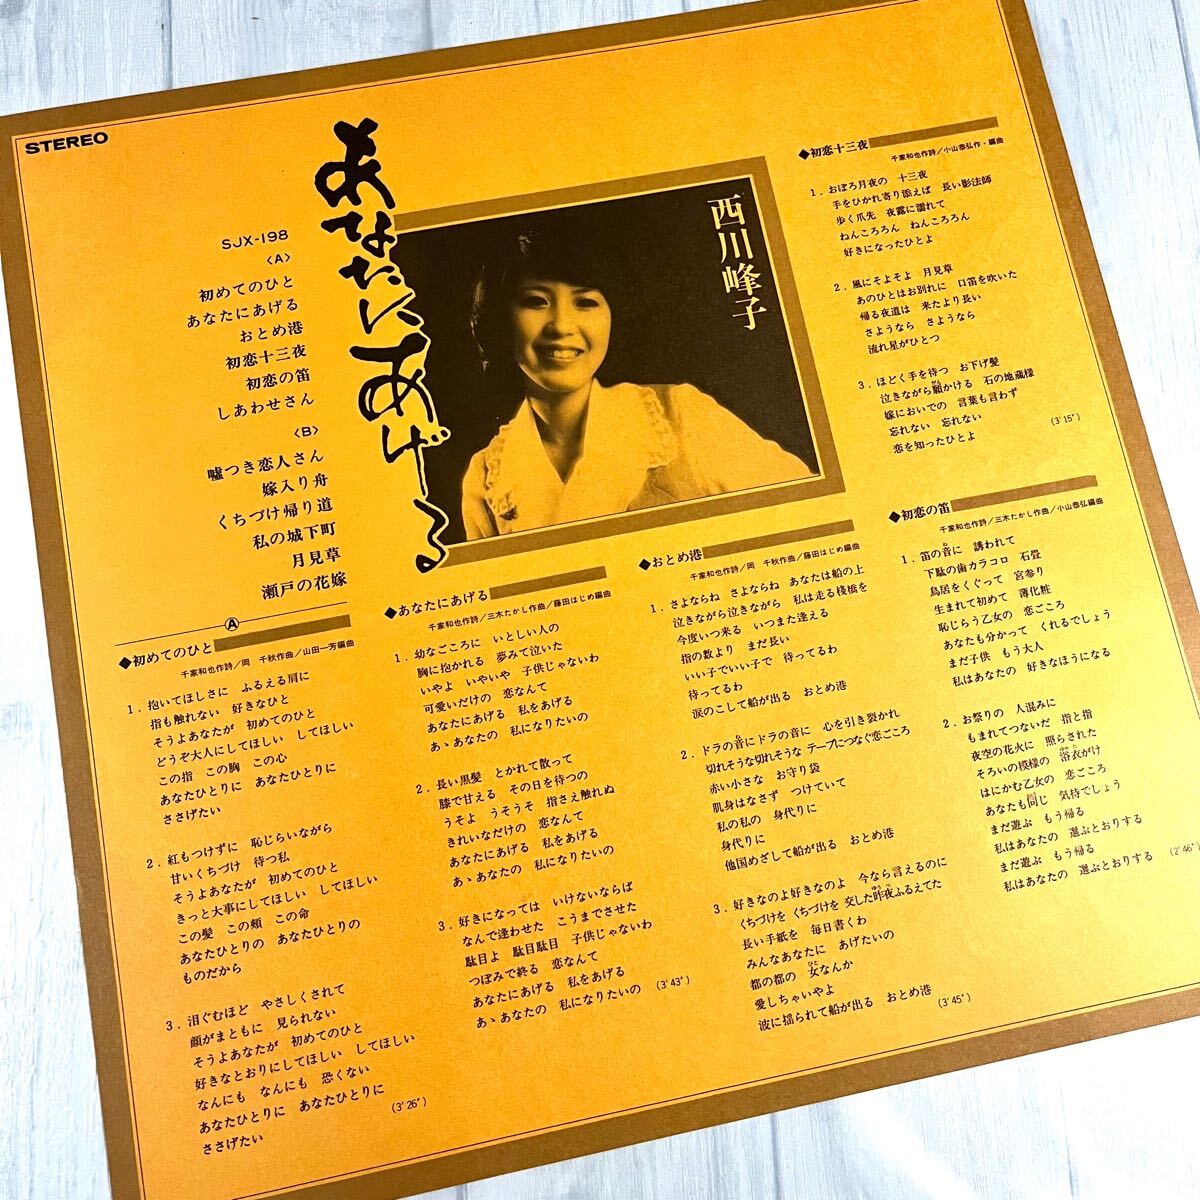 STEREO
あなたにあげる
西川峰子
SJX-198
〈A〉
初めてのひと
あなたにあげる
おとめ港
初恋十三夜
初恋の笛
しあわせさん
〈B〉
嘘つき恋人さん
嫁入り舟
くちづけ帰り道
私の城下町
月見草
瀬戸の花嫁
Ⓐ
◆初めてのひと
千家和也作詩/岡 千秋作曲/山田一芳編曲
1. 抱いてほしさに ふるえる肩に
指も触れない 好きなひと
そうよあなたが 初めてのひと
どうぞ大人にしてほしい してほしい
この指 この胸 この心
あなたひとりに あなたひとりに
ささげたい
2. 紅もつけずに 恥じらいながら
甘いくちづけ 待つ私
そうよあなたが 初めてのひと
きっと大事にしてほしい してほしい
この髪 この頬 この命
あなたひとりの あなたひとりの
ものだから
3. 泪ぐむほど やさしくされて
顔がまともに 見られない
そうよあなたが 初めてのひと
好きなとおりにしてほしい してほしい
なんにも なんにも 恐くない
あなたひとりに あなたひとりに
ささげたい
(3'26")
◆あなたにあげる
千家和也作詩/三木たかし作曲/藤田はじめ編曲
1. 幼なごころに いとしい人の
胸に抱かれる 夢みて泣いた
いやよ いやいや 子供じゃないわ
可愛いだけの 恋なんて
あなたにあげる 私をあげる
あゝあなたの 私になりたいの
2. 長い黒髪 とかれて散って
膝で甘える その日を待つの
うそよ うそうそ 指さえ触れぬ
きれいなだけの 恋なんて
あなたにあげる 私をあげる
あゝあなたの 私になりたいの
3. 好きになっては いけないならば
なんで逢わせた こうまでさせた
駄目よ 駄目駄目 子供じゃないわ
つぼみで終る 恋なんて
あなたにあげる 私をあげる
あゝあなたの 私になりたいの (3'43")
◆おとめ港
千家和也作詩/岡 千秋作曲/藤田はじめ編曲
1. さよならね さよならね あなたは船の上
泣きながら泣きながら 私は走る桟橋を
今度いつ来る いつまた逢える
指の数より まだ長い
いい子でいい子で 待ってるわ
待ってるわ
涙のこして船が出る おとめ港
2. ドラの音にドラの音に 心を引き裂かれ
切れそうな切れそうな テープにつなぐ恋ごころ
赤い小さな お守り袋
肌身はなさず つけていて
私の私の 身代りに
身代りに
他国めざして船が出る おとめ港
3. 好きなのよ好きなのよ 今なら言えるのに
くちづけを くちづけを 交した昨夜ふるえてた
長い手紙を 毎日書くわ
みんなあなたに あげたいの
都の都の 女なんか
愛しちゃいやよ
波に揺られて船が出る おとめ港 (3'45")
◆初恋十三夜
千家和也作詩/小山恭弘作・編曲
1. おぼろ月夜の 十三夜
手をひかれ寄り添えば 長い影法師
歩く爪先 夜露に濡れて
ねんころろん ねんころろん
好きになったひとよ
2. 風にそよそよ 月見草
あのひとはお別れに 口笛を吹いた
帰る夜道は 来たより長い
さようなら さようなら
流れ星がひとつ
3. ほどく手を待つ お下げ髪
泣きながら願かける 石の地蔵様
嫁においでの 言葉も言わず
忘れない 忘れない
恋を知ったひとよ
(3'15")
◆初恋の笛
千家和也作詩/三木たかし作曲/小山恭弘編曲
1. 笛の音に 誘われて
下駄の歯カラコロ 石畳
鳥居をくぐって 宮参り
生まれて初めて 薄化粧
恥じらう乙女の 恋ごころ
あなたも分かって くれるでしょう
まだ子供 もう大人
私はあなたの 好きなほうになる
2. お祭りの 人混みに
もまれてつないだ 指と指
夜空の花火に 照らされた
そろいの模様の 浴衣がけ
はにかむ乙女の 恋ごころ
あなたも同じ 気持でしょう
まだ遊ぶ もう帰る
私はあなたの 選ぶとおりする
まだ遊ぶ もう帰る
私はあなたの 選ぶとおりする (2'46")